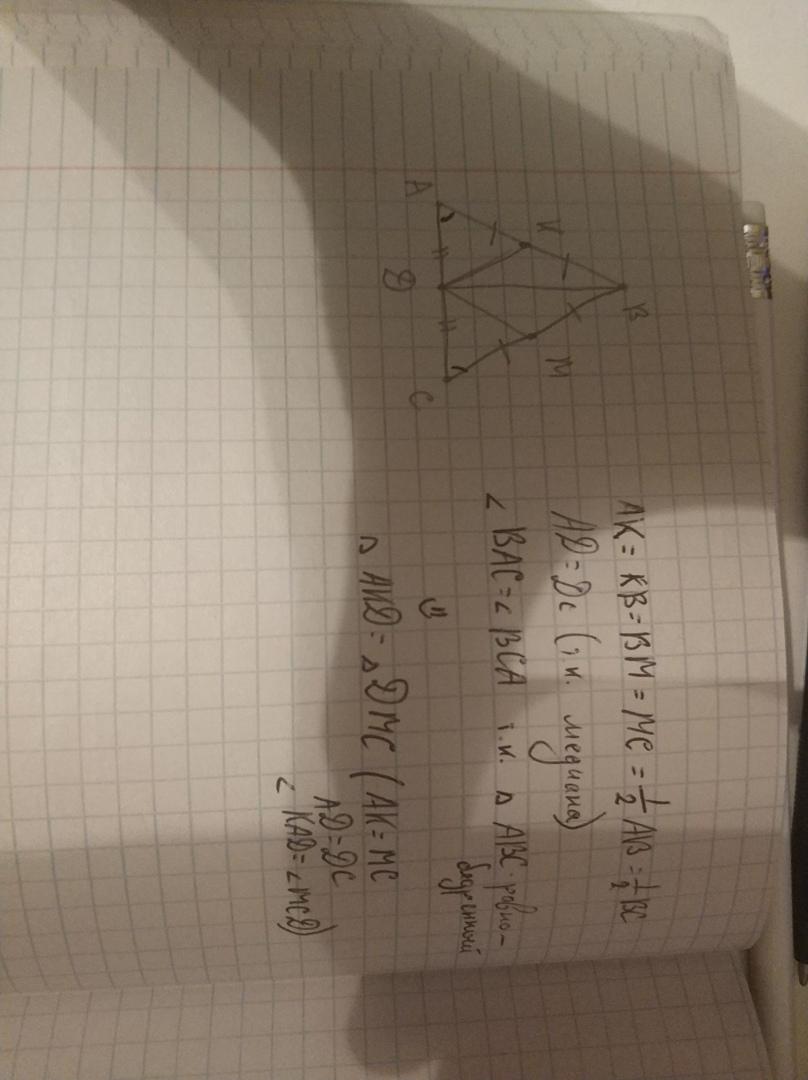 B
K
M
A
D
C
AK = KB = BM = MC = 1/2 AB = 1/2 BC
AD = DC (т.к. медиана)
∠ BAC = ∠ BCA т.к. △ ABC - равно-
бедренный
⇓
△ AKD = △ DMC (AK = MC
AD = DC
∠ KAD = ∠ MCD)